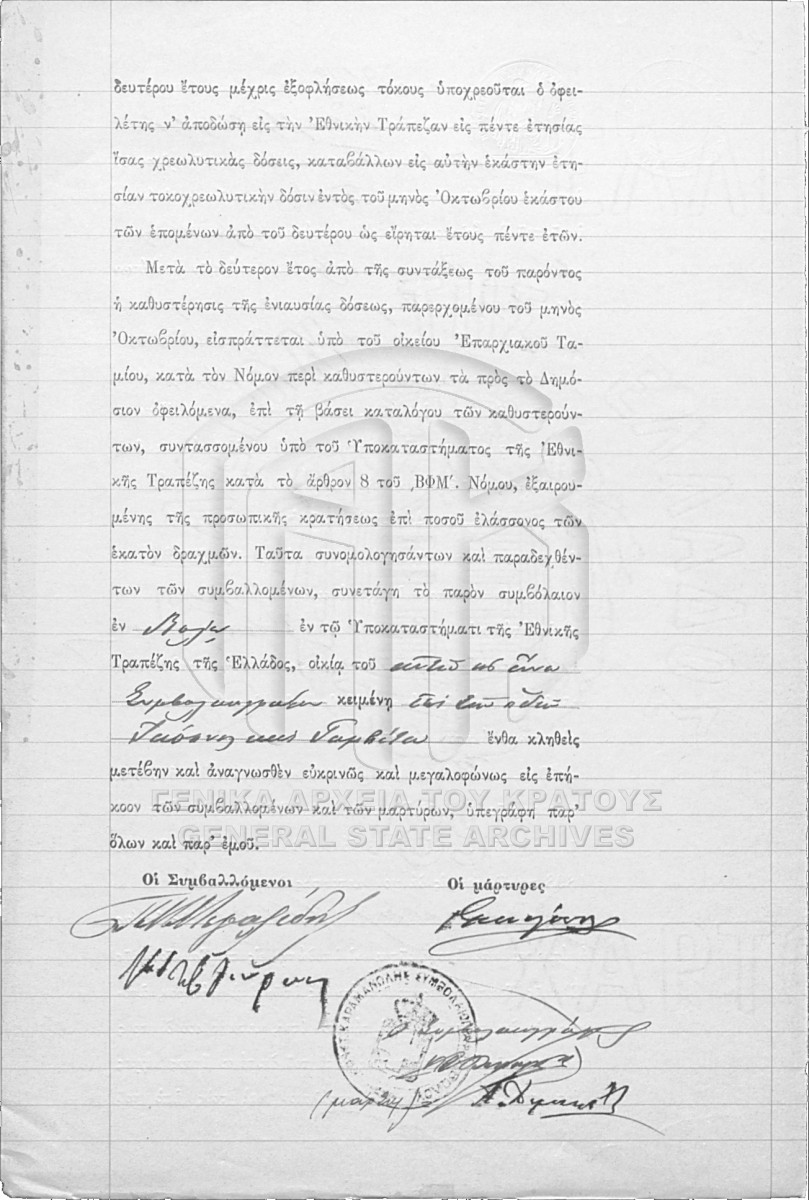 δευτέρου ἔτους μέχρις ἐξοφλήσεως τόκους ὑποχρεοῦται ὁ ὀφει-
λέτης ν’ ἀποδώσῃ εἰς τὴν Ἐθνικὴν Τράπεζαν εἰς πέντε ἐτησίας
ἴσας χρεωλυτικὰς δόσεις, καταβάλλων εἰς αὐτὴν ἑκάστην ἐτη-
σίαν τοκοχρεωλυτικὴν δόσιν ἐντὸς τοῦ μηνὸς Ὀκτωβρίου ἑκάστου
τῶν ἑπομένων ἀπὸ τοῦ δευτέρου ὡς εἴρηται ἔτους πέντε ἐτῶν.
Μετὰ τὸ δεύτερον ἔτος ἀπὸ τῆς συντάξεως τοῦ παρόντος
ἡ καθυστέρησις τῆς ἐνιαυσίας δόσεως, παρερχομένου τοῦ μηνὸς
Ὀκτωβρίου, εἰσπράττεται ὑπὸ τοῦ οἰκείου Ἐπαρχιακοῦ Τα-
μίου, κατὰ τὸν Νόμον περὶ καθυστερούντων τὰ πρὸς τὸ Δημό-
σιον ὀφειλόμενα, ἐπὶ τῇ βάσει καταλόγου τῶν καθυστερούν-
των, συντασσομένου ὑπὸ τοῦ Ὑποκαταστήματος τῆς Ἐθνι-
κῆς Τραπέζης κατὰ τὸ ἄρθρον 8 τοῦ ͵ΒΦΜʹ. Νόμου, ἐξαιρου-
μένης τῆς προσωπικῆς κρατήσεως ἐπὶ ποσοῦ ἐλάσσονος τῶν
ἑκατὸν δραχμῶν. Ταῦτα συνομολογησάντων καὶ παραδεχθέν-
των τῶν συμβαλλομένων, συνετάγη τὸ παρὸν συμβόλαιον
ἐν Βόλῳ ἐν τῷ Ὑποκαταστήματι τῆς Ἐθνικῆς
Τραπέζης τῆς Ἑλλάδος, οἰκίᾳ τοῦ
κειμένῃ ἐπὶ τῶν ὁδῶν
Ἰάσονος καὶ Γαμβέτα ἔνθα κληθεὶς
μετέβην καὶ ἀναγνωσθὲν εὐκρινῶς καὶ μεγαλοφώνως εἰς ἐπή-
κοον τῶν συμβαλλομένων καὶ τῶν μαρτύρων, ὑπεγράφη παρ’
ὅλων καὶ παρ’ ἐμοῦ.
ΓΕΝΙΚΑ ΑΡΧΕΙΑ ΤΟΥ ΚΡΑΤΟΥΣ
GENERAL STATE ARCHIVES
Οἱ Συμβαλλόμενοι Οἱ μάρτυρες
ΚΑΡΑΜΑΝΩΛΗΣ